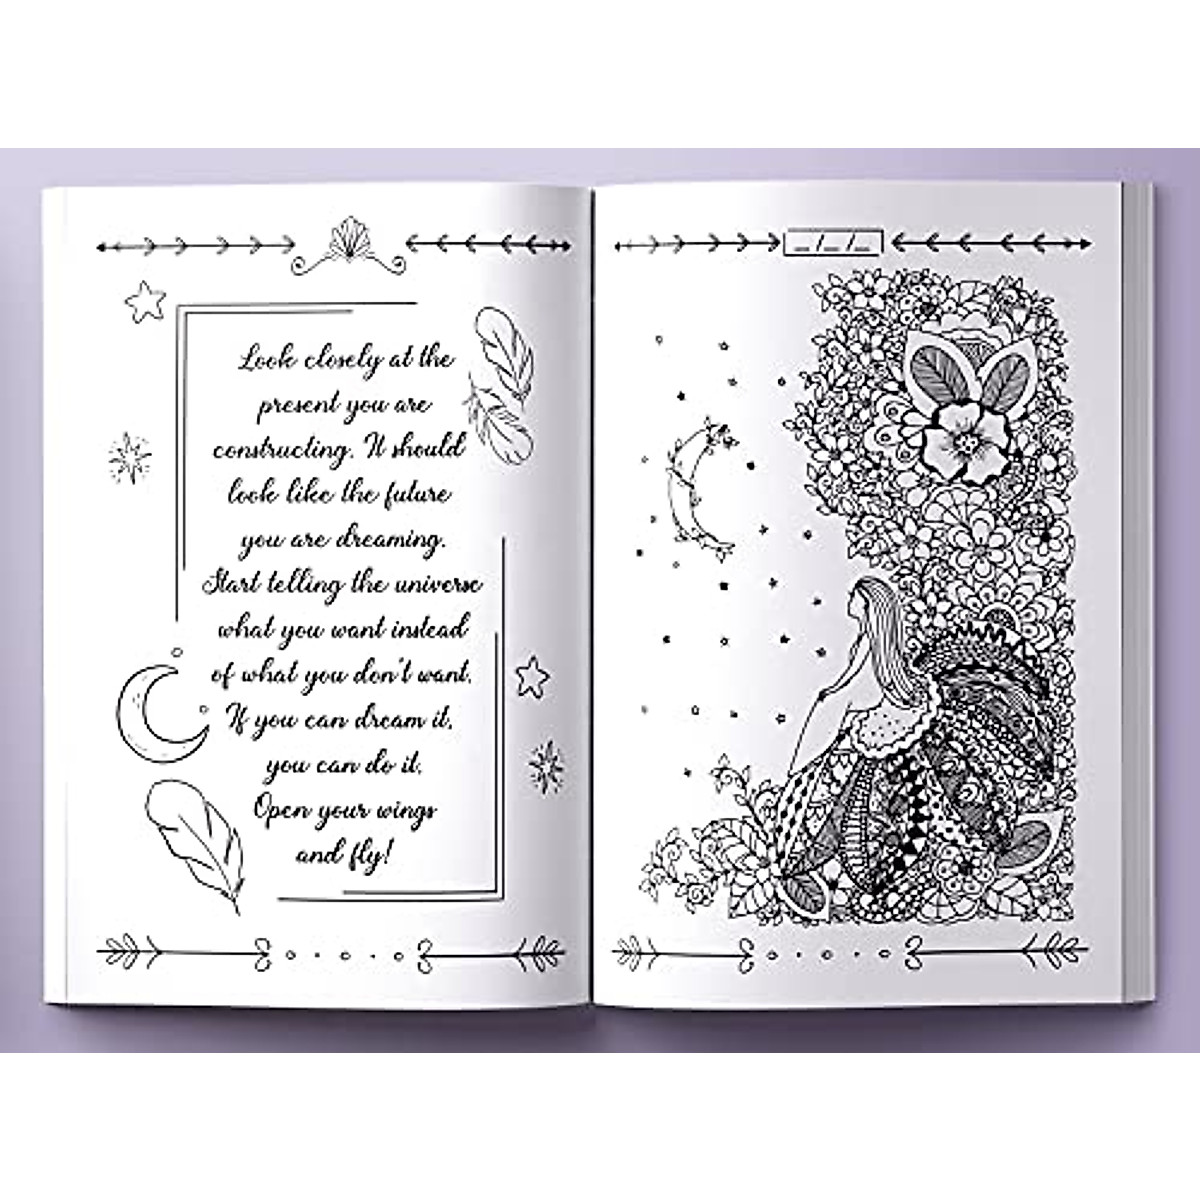 Look closely at the
present you are
constructing. It should
look like the future
you are dreaming.
Start telling the universe
what you want instead
of what you don't want.
If you can dream it,
you can do it.
Open your wings
and fly!
_/_/_